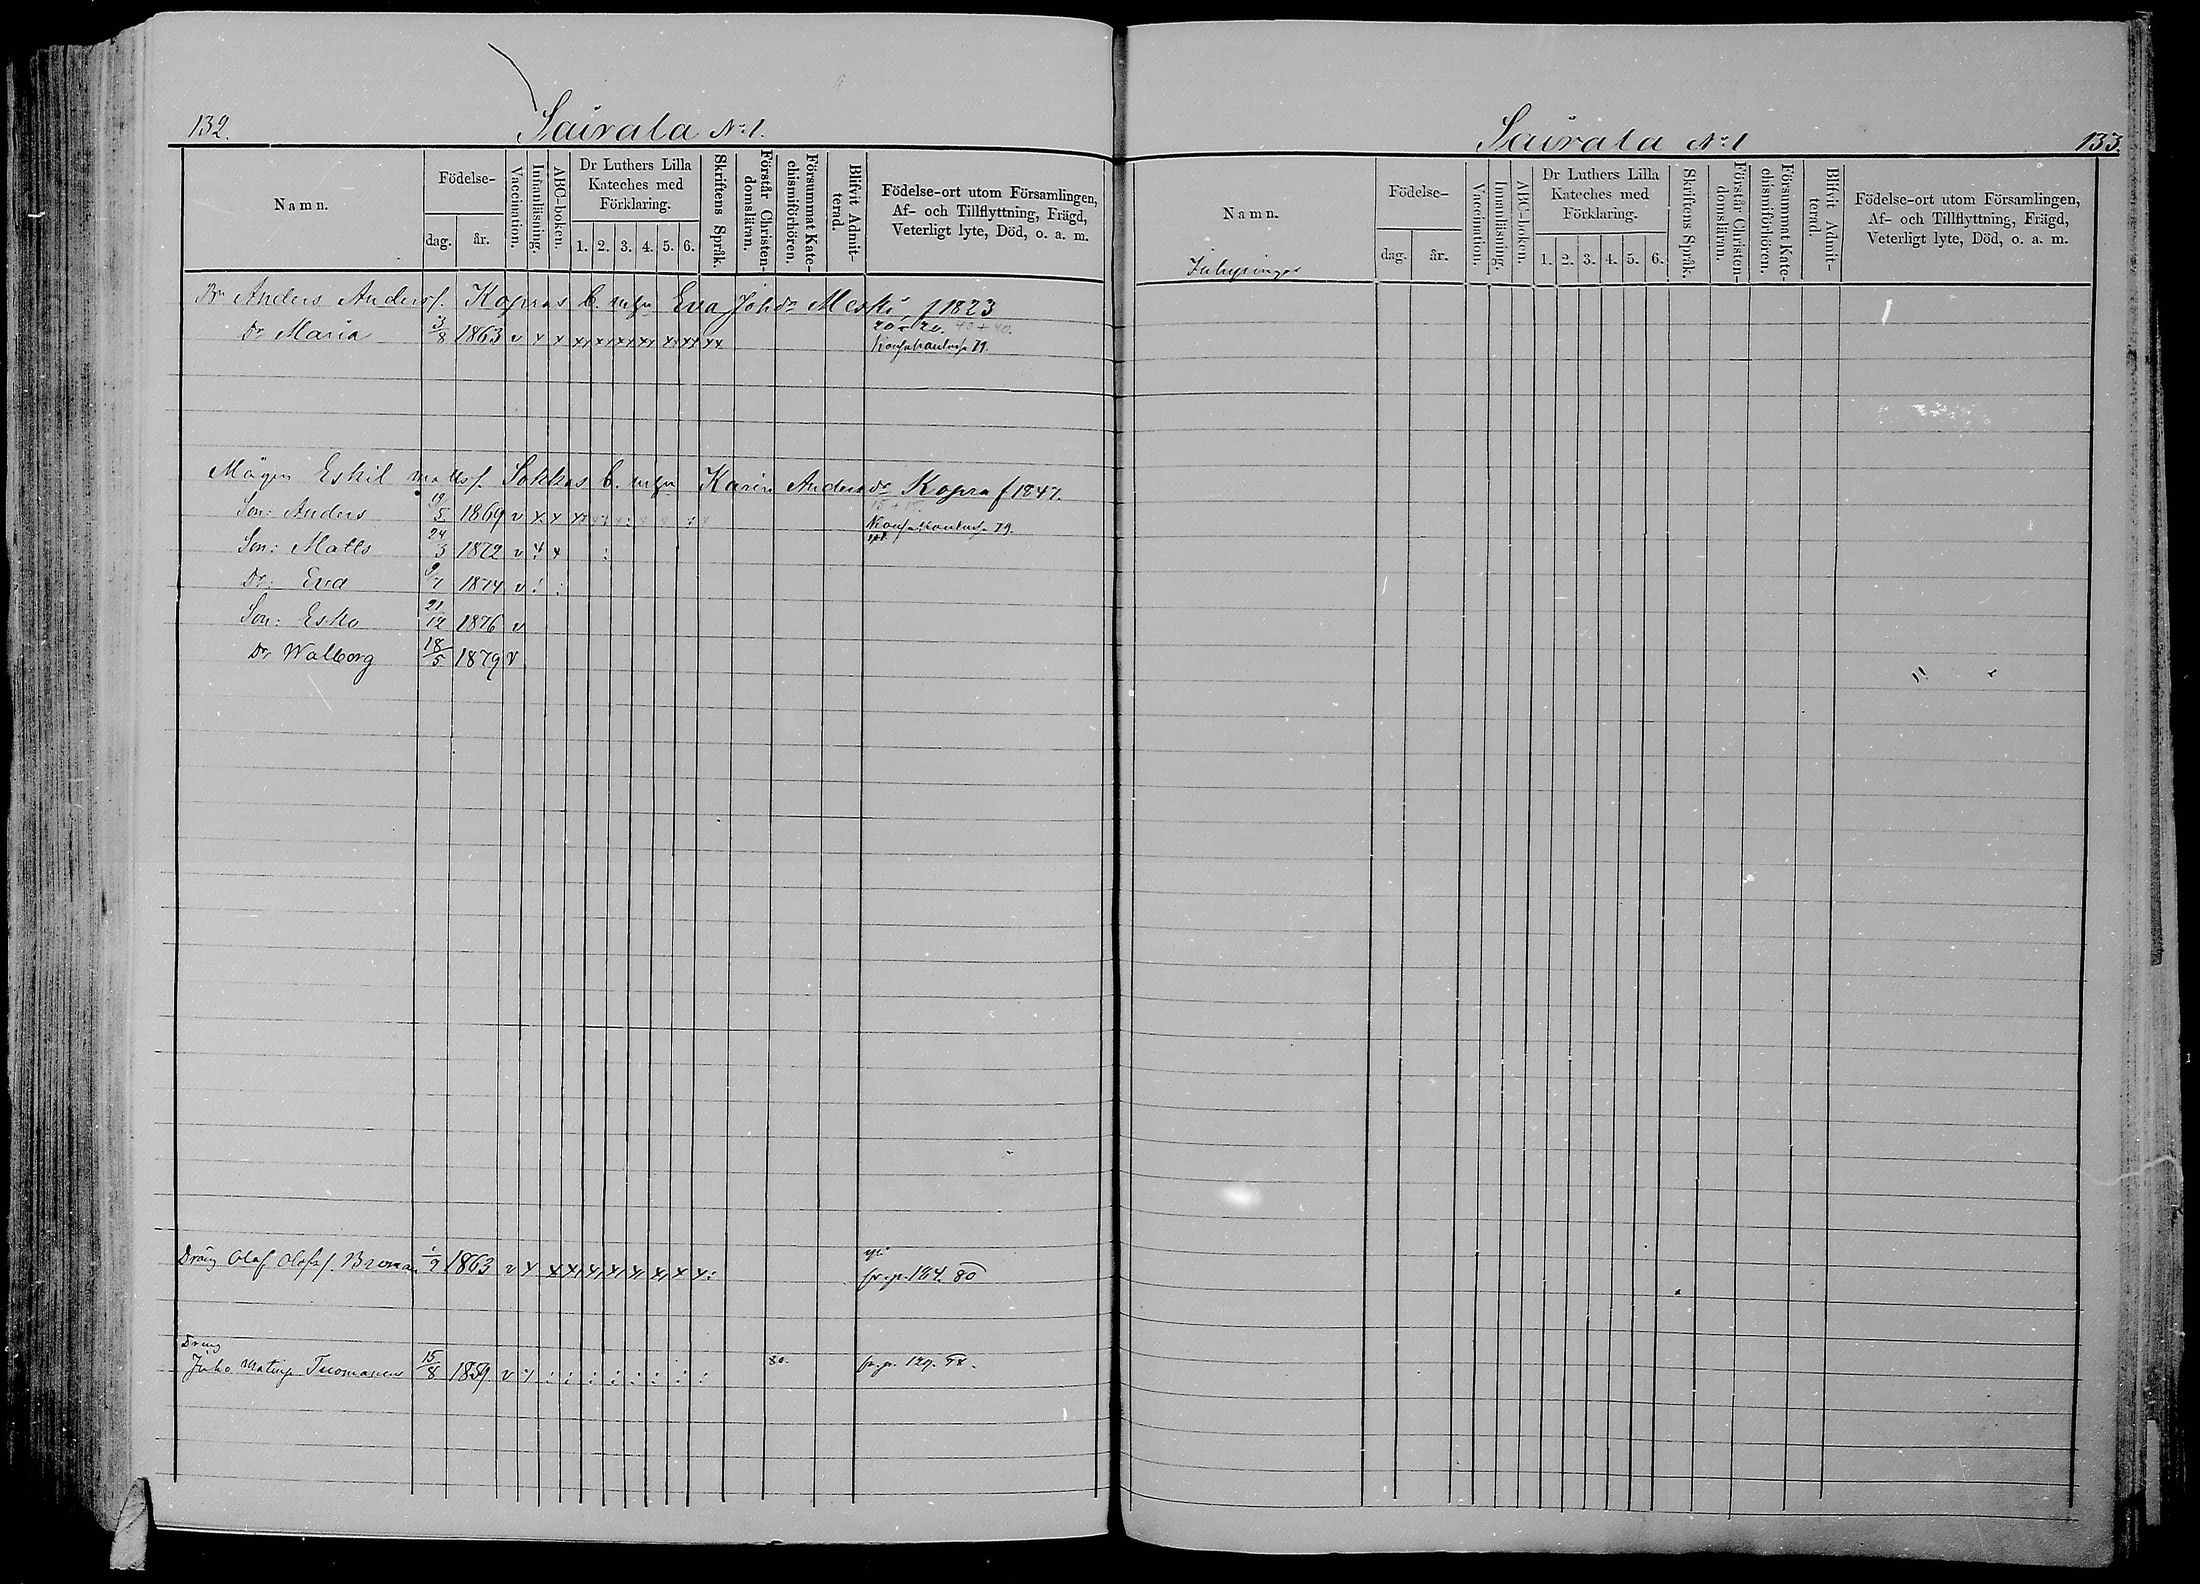 132.
Sairala No 1.
Namn.
Födelse-
dag.
år.
Vaccination.
Innanläsning.
ABC-boken.
Dr Luthers Lilla
Kateches med
Förklaring.
1. 2. 3. 4. 5. 6.
Skriftens Språk.
Förstår Christen-
domsläran.
Försummat Kate-
chismiförhören.
Blifvit Admit-
terad.
Födelse-ort utom Församlingen,
Af- och Tillflyttning, Frägd,
Veterligt lyte, Död, o. a. m.
Anders Andersf. Kopras Eva Johdr Meski, f 1823
Dr Maria 3/8 1863 v x x
20+20. 40+40.
Mågen Eskil Mattsf. Sokkas Karin Andersdr Kopra f 1847.
Son: Anders 19/5 1869 v x x
Son: Matts 24/3 1872 v x x
Dr: Eva 9/7 1874 v : :
Son: Esko 21/12 1876 v
Dr Walborg 18/5 1879 v
Dräng Olof Olofsf. Broman 1/9 1863 v x x x x x x x x x:
fr. p. 184. 80
Dräng
Juho Matinp. Tuomanen 15/8 1859 v x : : : : : : : : 80. fr. p. 129.
Sairala No 1
133.
Namn.
Födelse-
dag.
år.
Vaccination.
Innanläsning.
ABC-boken.
Dr Luthers Lilla
Kateches med
Förklaring.
1. 2. 3. 4. 5. 6.
Skriftens Språk.
Förstår Christen-
domsläran.
Försummat Kate-
chismiförhören.
Blifvit Admit-
terad.
Födelse-ort utom Församlingen,
Af- och Tillflyttning, Frägd,
Veterligt lyte, Död, o. a. m.
Inhysingar